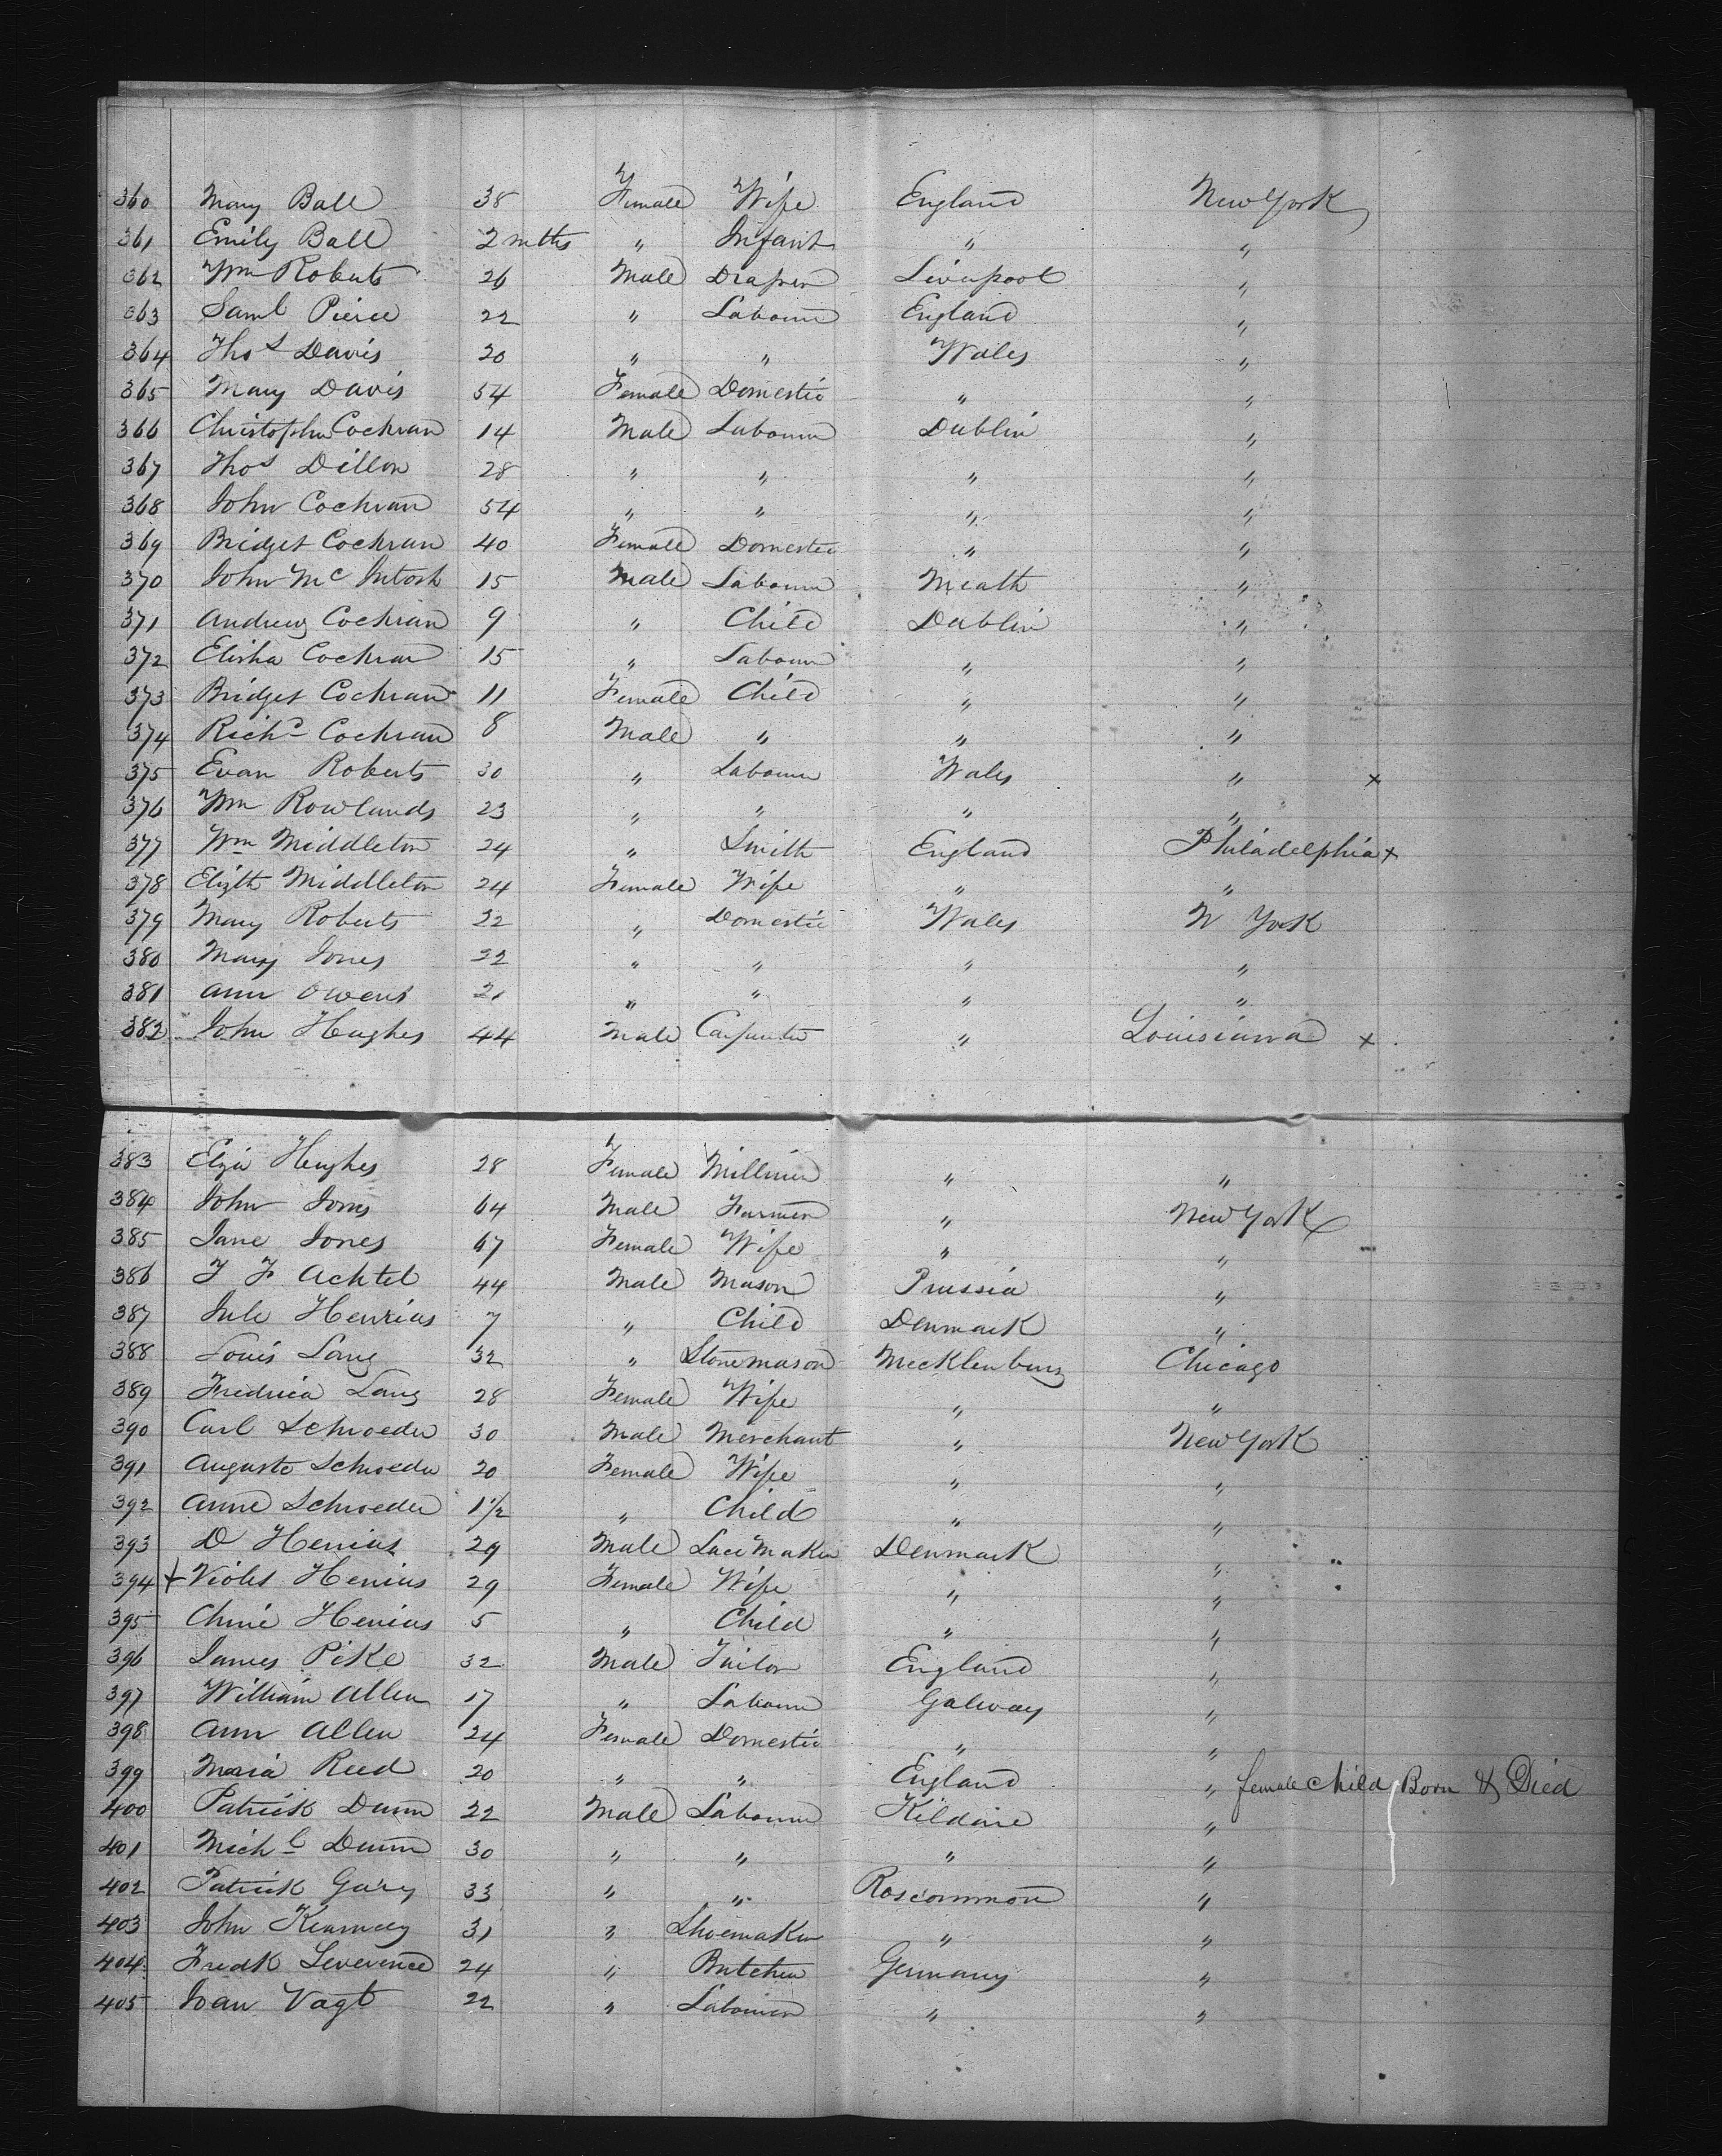 360 Mary Ball 38 Female Wife England New York
361 Emily Ball 2 mths " Infant " "
362 Wm Roberts 26 Male Draper Liverpool "
363 Saml Pierce 22 " Labourer England "
364 Thos Davis 20 " " Wales "
365 Mary Davis 54 Female Domestic " "
366 Christopher Cochran 14 Male Labourer Dublin "
367 Thos Dillon 28 " " " "
368 John Cochran 54 " " " "
369 Bridget Cochran 40 Female Domestic " "
370 John McIntosh 15 Male Labourer Meath "
371 Andrew Cochran 9 " Child Dublin "
372 Elisha Cochran 15 " Labourer " "
373 Bridget Cochran 11 Female Child " "
374 Richd Cochran 8 Male " " "
375 Evan Roberts 30 " Labourer Wales " x
376 Wm Rowlands 23 " " " "
377 Wm Middleton 24 " Smith England Philadelphia x
378 Elizth Middleton 24 Female Wife " "
379 Mary Roberts 22 " Domestic Wales N York
380 Mary Jones 22 " " " "
381 Ann Owens 21 " " " "
382 John Hughes 44 Male Carpenter " Louisiana x
383 Eliza Hughes 28 Female Milliner " "
384 John Jones 64 Male Farmer " New York
385 Jane Jones 67 Female Wife " "
386 J F Achtel 44 Male Mason Prussia "
387 Henrius 7 " Child Denmark "
388 Louis Lang 32 " Stonemason Mecklenburg Chicago
389 Fredrica Lang 28 Female Wife " "
390 Carl Schroeder 30 Male Merchant " New York
391 Auguste Schroeder 20 Female Wife " "
392 Anne Schroeder 1 1/2 " Child " "
393 D Henius 29 Male Lace Maker Denmark "
394 x Violet Henius 29 Female Wife " "
395 Henius 5 " Child " "
396 James Pike 32 Male Tailor England "
397 William Allen 17 " Labourer Galway "
398 Ann Allen 24 Female Domestic " "
399 Maria Reed 20 " " England " female Child Born & Died
400 Patrick Dunn 22 Male Labourer Kildare "
401 Michl Dunn 30 " " " "
402 Patrick Gary 33 " " Roscommon "
403 John Kearney 31 " Shoemaker " "
404 Fredk Leverence 24 " Butcher Germany "
405 Joan Vagt 22 " Labourer " "